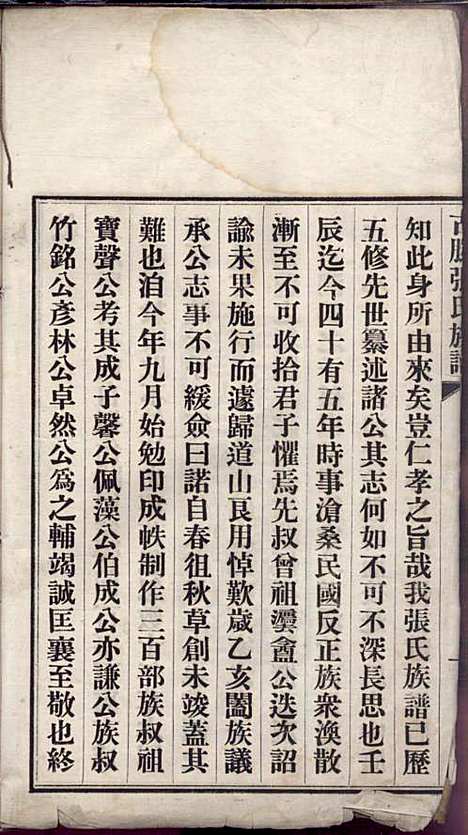 古 張氏族譜
知此身所由來矣豈仁孝之旨哉我張氏族譜已歷
五修先世纂述諸公其志何如不可不深長思也壬
辰迄今四十有五年時事滄桑民國反正族衆渙散
漸至不可收拾君子懼焉先叔曾祖 盦公迭次詔
諭未果施行而遽歸道山良用悼歎歲乙亥闔族議
承公志事不可緩僉曰諾自春徂秋草創未竣蓋其
難也洎今年九月始勉印成帙制作三百部族叔祖
寶聲公考其成子馨公佩藻公伯成公亦謙公族叔
竹銘公彥林公卓然公爲之輔竭誠匡襄至敬也終